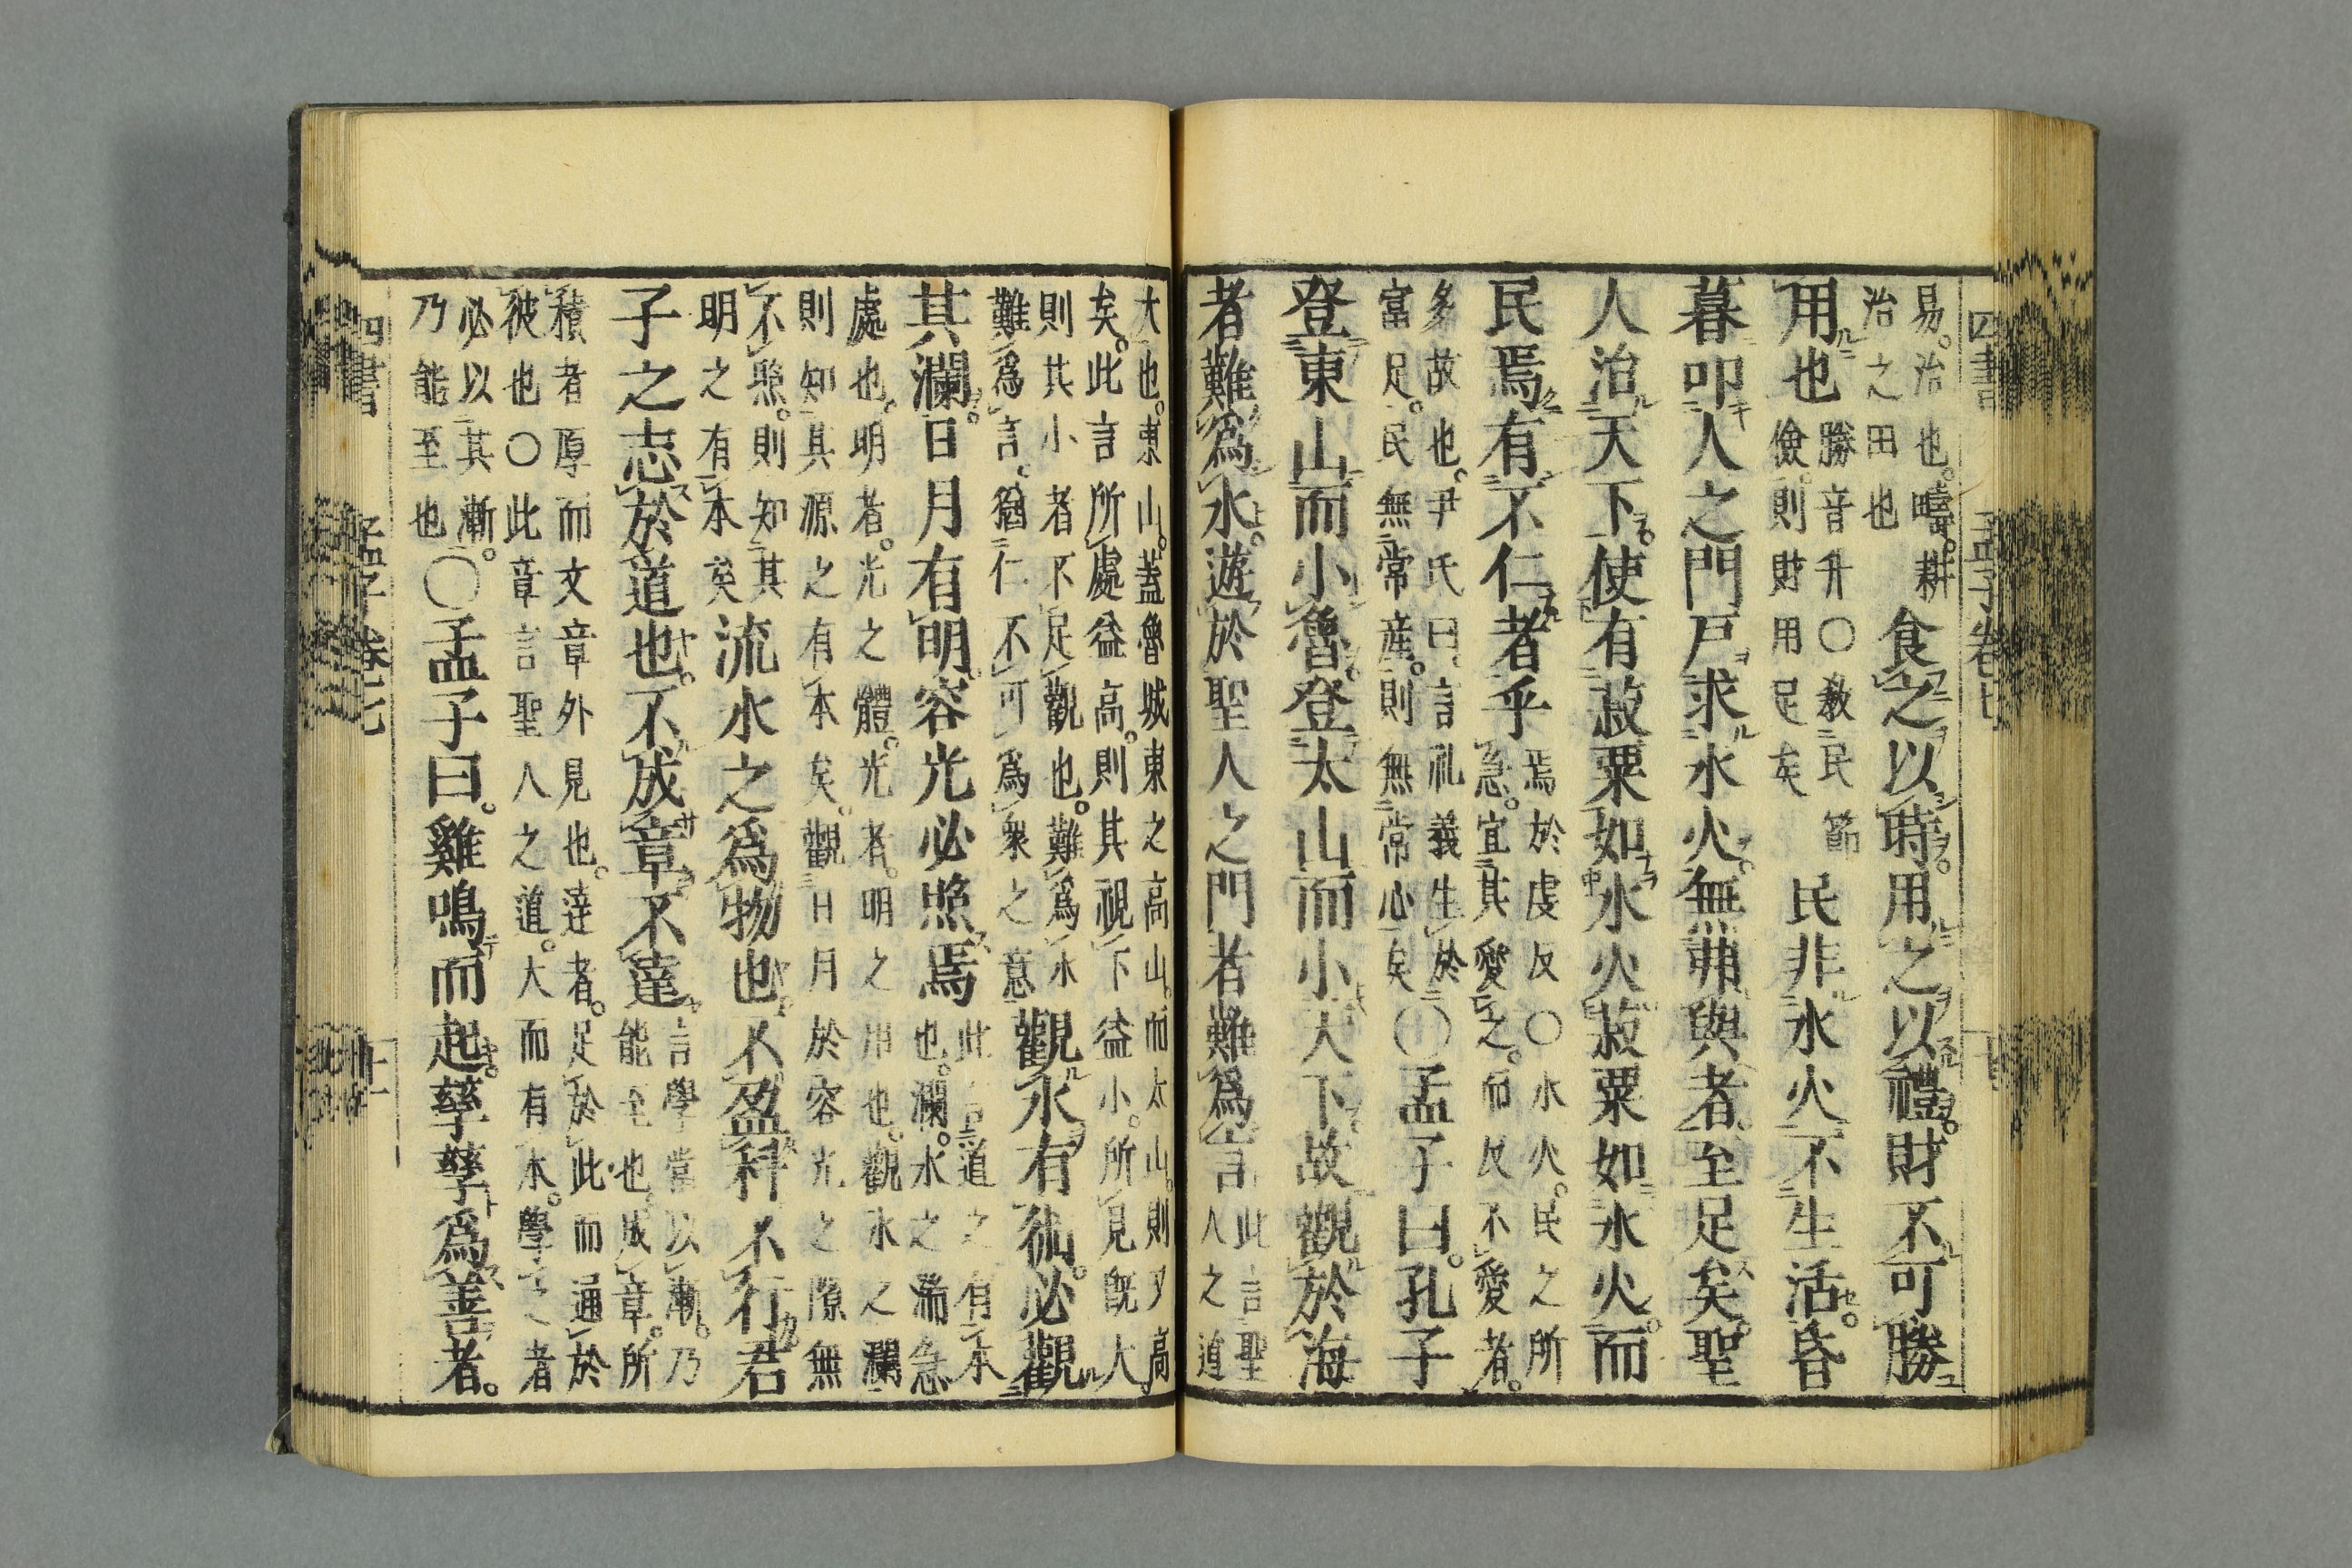 四書 孟子卷七 十
易。治也。疇。耕
治之田也
食之以時。用之以禮。財不可勝
用也
勝音升〇教民節
儉。則財用足矣
民非水火不生活。昏
暮叩人之門戸求水火。無弗與者。至足矣。聖
人治天下。使有菽粟如水火。菽粟如水火。而
民焉有不仁者乎
焉於虔反〇水火。民之所
急。宜其愛之。而反不愛者。
多故也。尹氏曰。言礼義生於
富足。民無常産。則無常心矣
〇孟子曰。孔子
登東山而小魯。登太山而小天下。故觀於海
者難爲水。遊於聖人之門者難爲言
此言聖
人之道
大也。東山。蓋魯城東之高山。而太山。則又高
矣。此言所處益高。則其視下益小。所見既大。
則其小者不足觀也。難爲水
難爲言。猶仁不可爲衆之意
觀水有術。必觀
其瀾。日月有明。容光必照焉
此言道之有本
也。瀾。水之湍急
處也。明者。光之體。光者。明之用也。觀水之瀾
則知其源之有本矣。觀日月於容光之隙無
不照。則知其
明之有本矣
流水之爲物也。不盈科不行。君
子之志於道也。不成章不達
言學當以漸。乃
能至也。成章。所
積者厚而文章外見也。達者。足於此而通於
彼也〇此章言聖人之道。大而有本。學之者
必以其漸。
乃能至也
〇孟子曰。雞鳴而起。孳孳爲善者。
四書 孟子卷七 十一